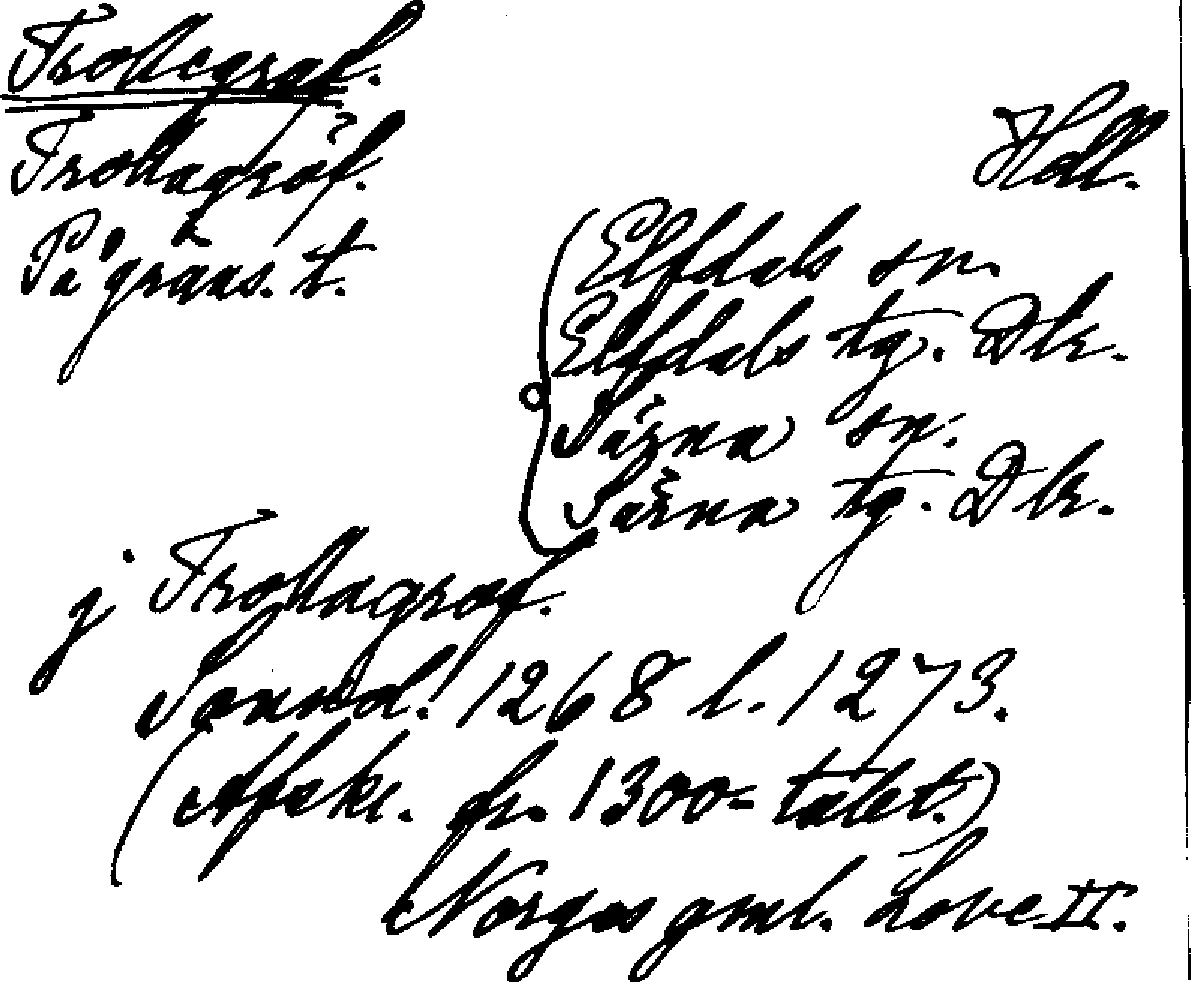 Trollegraf.
Trollagröf.
Häll.
På gräns. t.
Elfdals sn.
Elfdals tg. Dlr.
Särna sn.
Särna tg. Dlr.
j Trollagrof.
Sannd. 1268 l. 1273.
(Afskr. fr. 1300-talet.)
Norges gml. Love II.